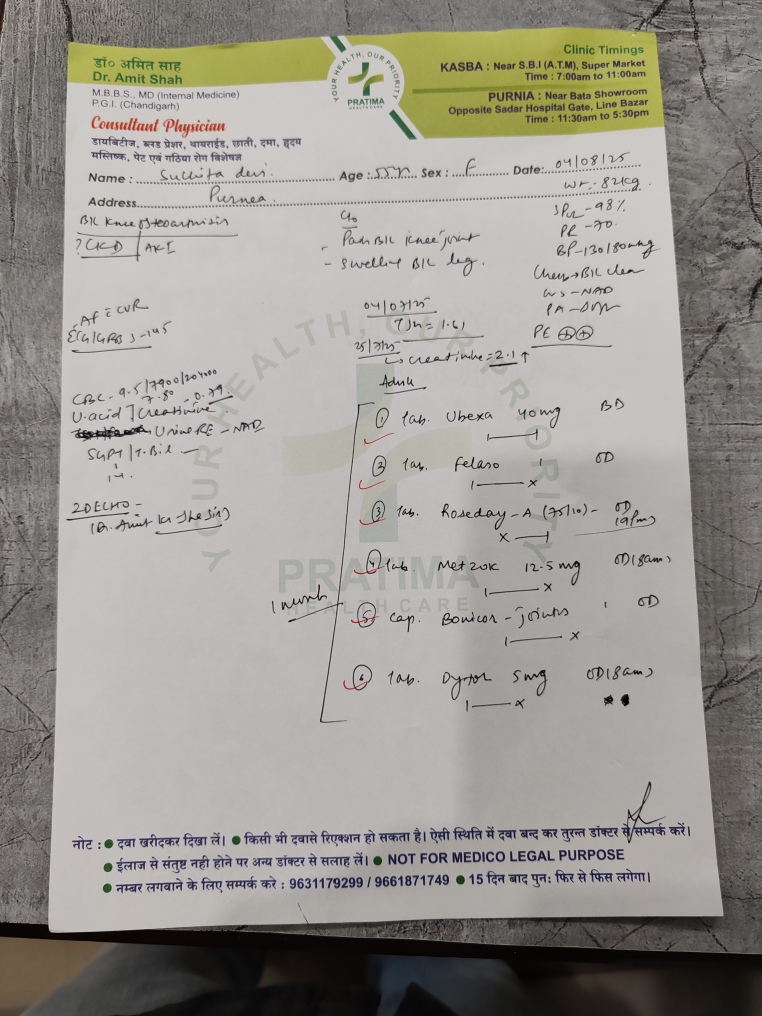 डॉ० अमित साह
Dr. Amit Shah
M.B.B.S., MD (Internal Medicine)
P.G.I. (Chandigarh)
Consultant Physician
डायबिटीज, ब्लड प्रेशर, थायराईड, छाती, दमा, हृदय
मस्तिष्क, पेट एवं गठिया रोग विशेषज्ञ
YOUR HEALTH, OUR PRIORITY
PRATIMA
HEALTH CARE
Clinic Timings
KASBA : Near S.B.I (A.T.M), Super Market
Time : 7:00am to 11:00am
PURNIA : Near Bata Showroom
Opposite Sadar Hospital Gate, Line Bazar
Time : 11:30am to 5:30pm
Name : devi Age : 55 Sex : F Date: 04/08/25
Address Purnea
Wt - 82kg
B/L Knee osteoarthritis
? CKD / AKI
C/o
- Pain B/L knee joint
- Swelling B/L leg.
SPO2 - 98%
PR - 70
BP - 130/80 mmhg
Chest B/L clear
- NAD
PA - Soft
PE ++
AF CVR
ECG/GRBS - 145
CBC - 9.5/7900/204000
7.80 - 0.79
U.acid / Creatinine
Urine RE - NAD
SGPT / T.Bil
2D ECHO -
04/07/25
= 1.61
25/7/25
↳ creatinine = 2.1 ↑
Advice
1 month
① Tab. Ubexa 40mg BD
② Tab. Felaso 1 OD
③ Tab. Roseday - A (75/10) - OD (9pm)
④ Tab. Metzok 12.5 mg OD (8am)
⑤ Cap. Bonicor - joints 1 OD
⑥ Tab. Dytor 5mg OD (8am)
YOUR HEALTH, OUR PRIORITY
PRATIMA
HEALTH CARE
नोट : ● दवा खरीदकर दिखा लें। ● किसी भी दवासे रिएक्शन हो सकता है। ऐसी स्थिति में दवा बन्द कर तुरन्त डॉक्टर से सम्पर्क करें।
● ईलाज से संतुष्ट नही होने पर अन्य डॉक्टर से सलाह लें। ● NOT FOR MEDICO LEGAL PURPOSE
● नम्बर लगवाने के लिए सम्पर्क करे : 9631179299 / 9661871749 ● 15 दिन बाद पुन: फिर से फिस लगेगा।